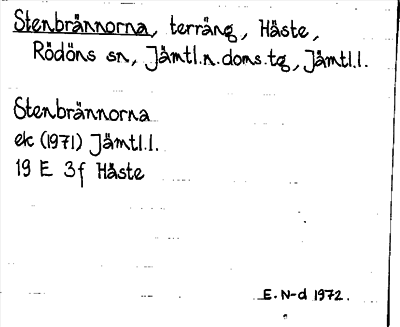 Stenbrännorna, terräng, Häste,
Rödöns sn, Jämtl.n.doms.tg, Jämtl.l.
Stenbrännorna
ek (1971) Jämtl.l.
19 E 3f Häste
E. N-d 1972.